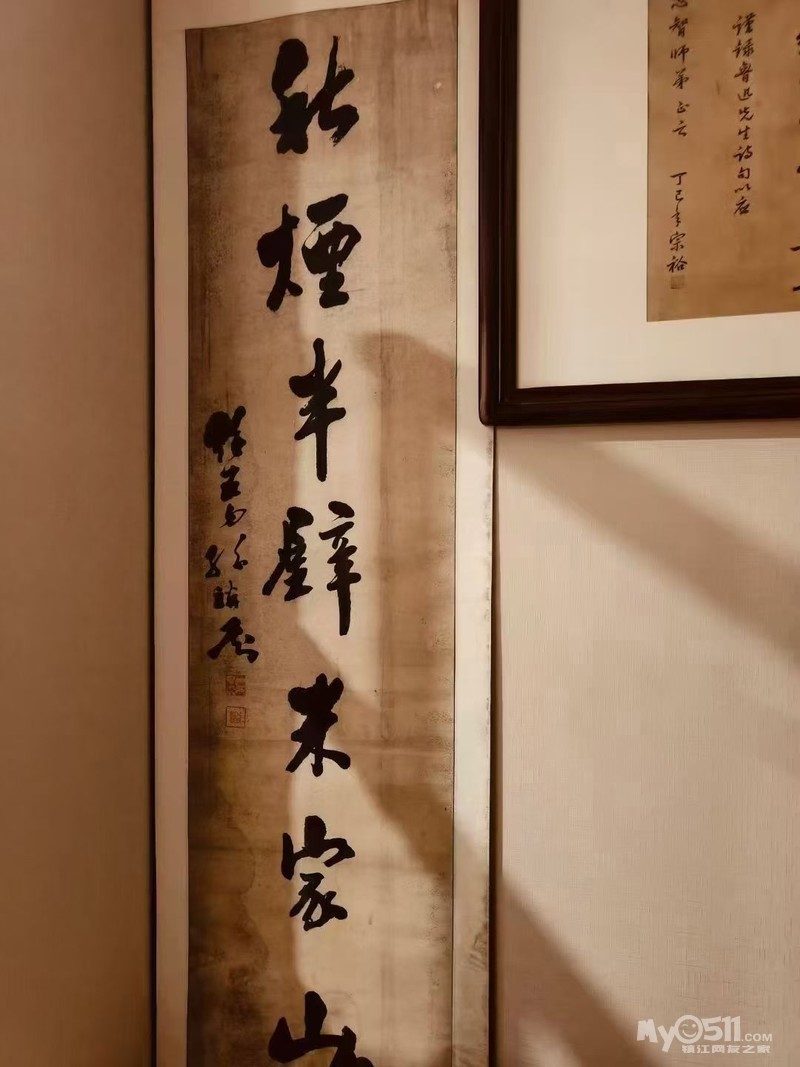 謹録魯迅先生诗句以应
智师弟正之 丁巳年宗裕
秋煙半壁米家山
My0511.COM
镇江网友之家